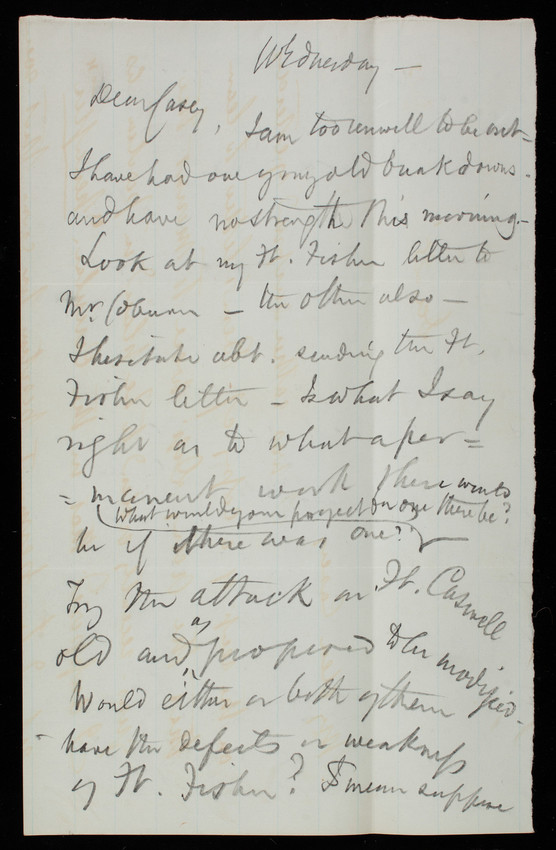 Wednesday —
Dear Casey,
I am too unwell to be out —
I have had one of my old breakdowns —
and have no strength this morning. —
Look at my Ft. Fisher letter to
Mr. Coburn — the other also —
I hesitate abt. sending the Ft.
Fisher letter — Is what I say
right as to what a per =
= manent work there would
(What would your project for one there be?
be if there was one?)
Try the attack on Ft. Caswell
old and, as proposed to be modified.
Would either or both of them
have the defects or weakness
of Ft. Fisher? I mean suppose